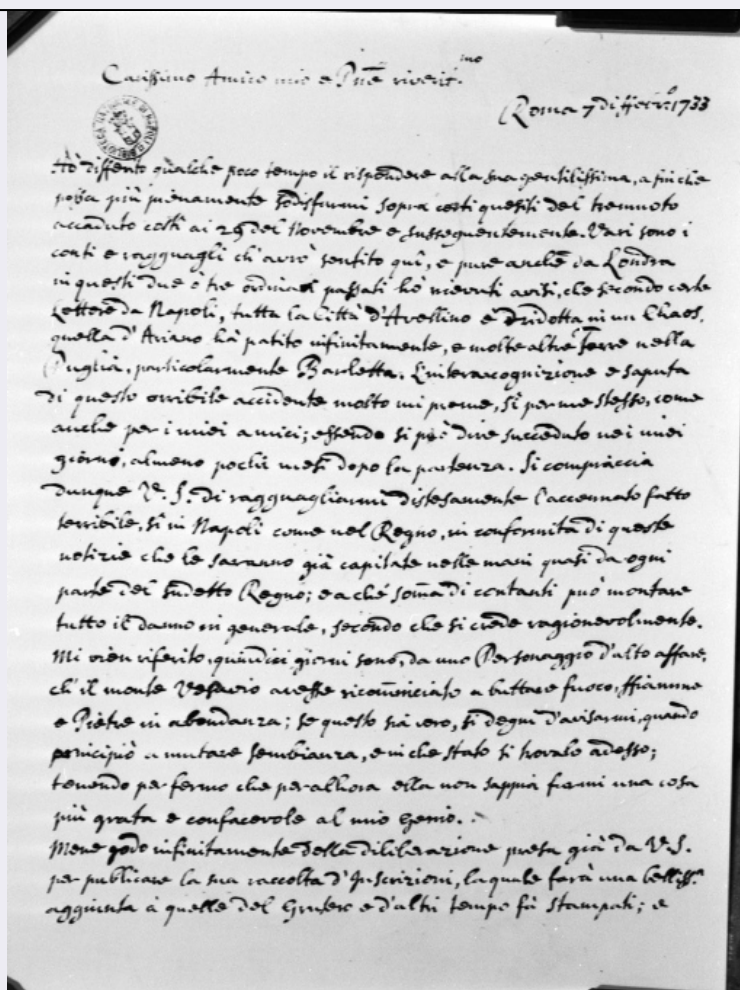 Carissimo Amico mio e Pñe riverit.mo
Roma 7 di 1733
Hò differito qualche poco tempo il rispondere alla sua gentilissima, a fin che
possa più pienamente sodisfarmi sopra certi quesiti del tremuoto
accaduto costì ai 29 del Novembre e susseguentemente. Vari sono i
conti e ragguagli ch'avrò sentito quì, e pure anche da Londra
in questi due ò tre ordinari passati hò ricevuti avisi, che secondo certe
Lettere da Napoli, tutta la Città d'Avellino è ridotta in un Chaos.
quella d'Ariano hà patito infinitamente, e molte altre Terre nella
Puglia, particolarmente Barletta. L'intera cognizione e saputa
di questo orribile accidente molto mi preme, sì per me stesso, come
anche per i miei amici; essendo si può dire succeduto nei miei
giorni, almeno pochi mesi dopo la partenza. Si compiaccia
dunque V. S. di ragguagliarmi distesamente l'accennato fatto
terribile, sì in Napoli come nel Regno, in conformità di queste
notizie che le saranno già capitate nelle mani quasi da ogni
parte del sudetto Regno; e a che som̃a di contanti può montare
tutto il danno in generale, secondo che si crede ragionevolmente.
Mi vien riferito, quindici giorni sono, da uno Personaggio d'alto affare,
ch'il monte Vesuvio avesse ricom̃enciato a buttare fuoco, ffiamme
e Pietre in abondanza; se questo sia vero, si degni d'avisarmi, quando
principiò a mutare sembianza, e in che stato si trovalo adesso;
tenendo per fermo che per allhora ella non sappia farmi una cosa
più grata e confacevole al mio Genio.
Mene godo infinitamente della diliberazione presa già da V. S.
per publicare la sua raccolta d'Inscrizioni, la quale farà una belliss.a
aggiunta à quelle del Grutero e d'altri tempo fà stampati; e